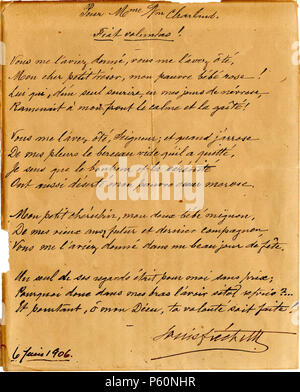 Pour Mme Wm Chartrand.
Fiat voluntas !
Vous me l'aviez donné, vous me l'avez ôté,
Mon cher petit trésor, mon pauvre bébé rose !
Lui que, d'un seul sourire, en mes jours de névrose,
Ramenait à mon front le calme et la gaîté !
Vous me l'avez ôté, Seigneur ; et quand j'arrose
De mes pleurs le berceau vide qu'il a quitté,
Je sens que le bonheur et la
Ont aussi déserté mon pauvre morose.
Mon petit chérubin, mon doux bébé mignon,
De mes vieux ans futur et dernier compagnon,
Vous me l'aviez donné dans un beau jour de fête.
Un seul de ses regards était pour moi sans prix ;
Pourquoi donc dans mes bras l'avoir sitôt repris ?...
Et pourtant, ô mon Dieu, ta volonté soit faite !
Louis Fréchette
6 Juin 1906.
alamy
Image ID: P60NHR
www.alamy.com